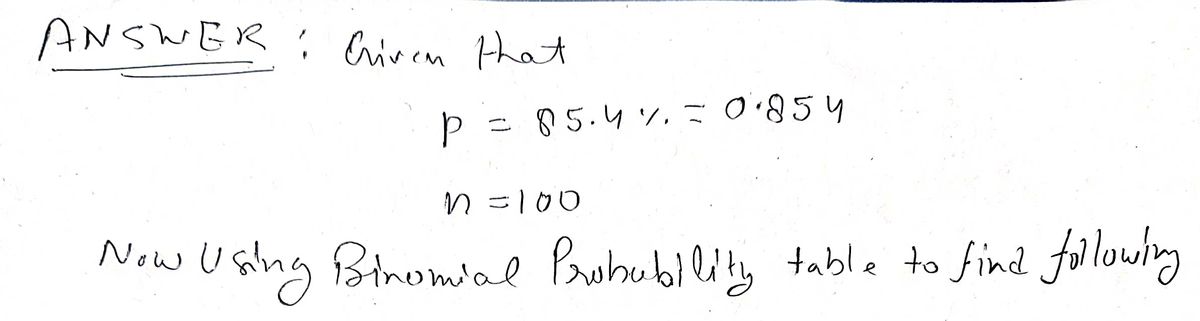 ANSWER : Given that
p = 85.4 %. = 0.854
n = 100
Now Using Binomial Probability table to find following